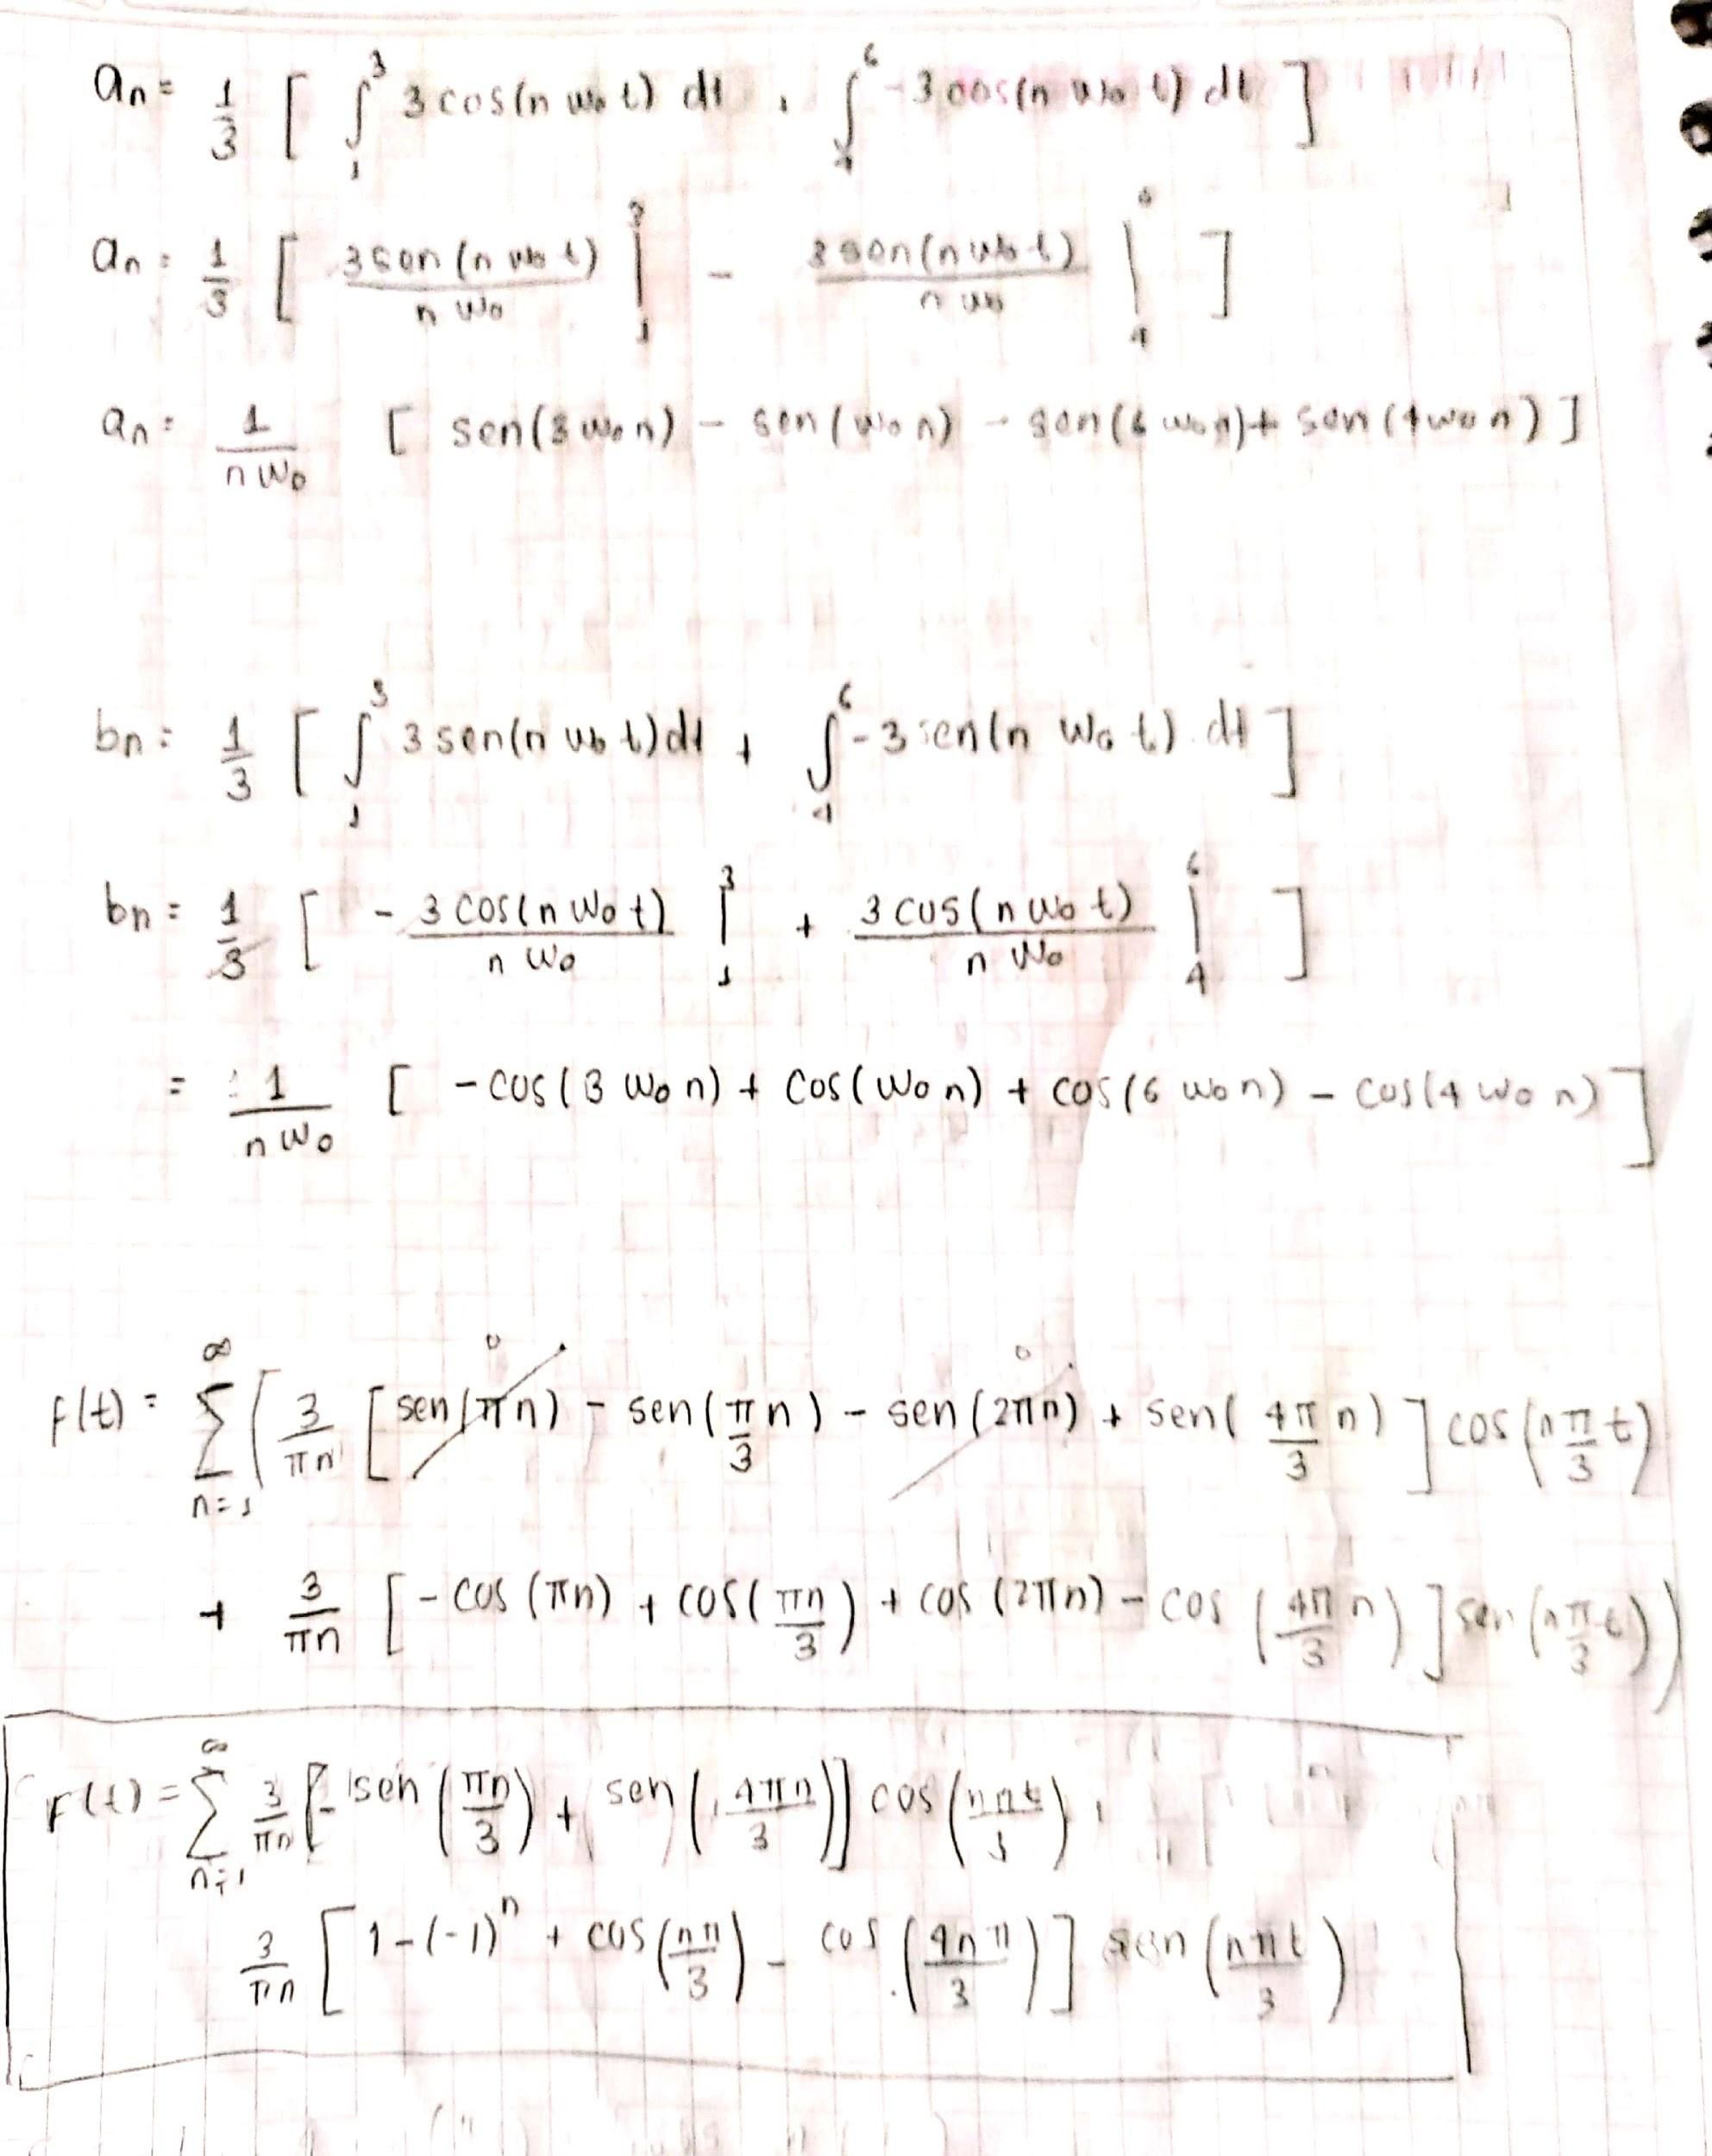 an = 1/3 [ ∫₁³ 3 cos(n w₀ t) dt + ∫₄⁶ -3 cos(n w₀ t) dt ]
an = 1/3 [ 3 sen(n w₀ t) / n w₀ |₁³ - 3 sen(n w₀ t) / n w₀ |₄⁶ ]
an = 1 / n w₀ [ sen(3 w₀ n) - sen(w₀ n) - sen(6 w₀ n) + sen(4 w₀ n) ]
bn = 1/3 [ ∫₁³ 3 sen(n w₀ t) dt + ∫₄⁶ -3 sen(n w₀ t) dt ]
bn = 1/3 [ - 3 cos(n w₀ t) / n w₀ |₁³ + 3 cos(n w₀ t) / n w₀ |₄⁶ ]
= 1 / n w₀ [ -cos(3 w₀ n) + cos(w₀ n) + cos(6 w₀ n) - cos(4 w₀ n) ]
F(t) = ∑ₙ₌₁^∞ ( 3/πn [ sen(πn) 0 - sen(π/3 n) - sen(2πn) 0 + sen(4π/3 n) ] cos(n π/3 t)
+ 3/πn [ -cos(πn) + cos(πn/3) + cos(2πn) - cos(4π/3 n) ] sen(n π/3 t) )
F(t) = ∑ₙ₌₁^∞ 3/πn [ - sen(πn/3) + sen(4πn/3) ] cos(nπt/3) +
3/πn [ 1-(-1)ⁿ + cos(nπ/3) - cos(4nπ/3) ] sen(nπt/3)